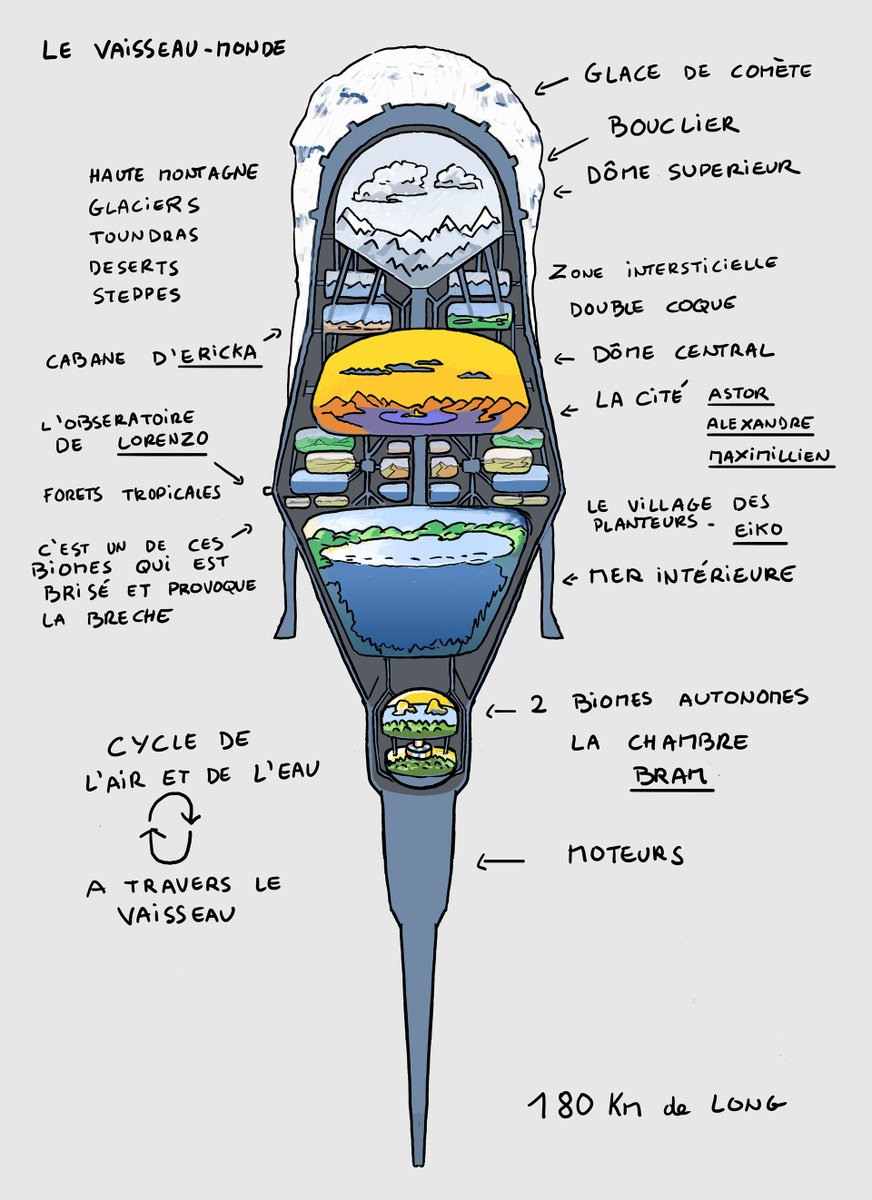 LE VAISSEAU-MONDE
GLACE DE COMÈTE
BOUCLIER
DÔME SUPERIEUR
HAUTE MONTAGNE
GLACIERS
TOUNDRAS
DESERTS
STEPPES
ZONE INTERSTICIELLE
DOUBLE COQUE
CABANE D'ERICKA
DÔME CENTRAL
LA CITÉ ASTOR
ALEXANDRE
MAXIMILLIEN
L'OBSERATOIRE
DE LORENZO
FORETS TROPICALES
LE VILLAGE DES
PLANTEURS - EIKO
C'EST UN DE CES
BIOMES QUI EST
BRISÉ ET PROVOQUE
LA BRECHE
MER INTÉRIEURE
2 BIOMES AUTONOMES
LA CHAMBRE
BRAM
CYCLE DE
L'AIR ET DE L'EAU
A TRAVERS LE
VAISSEAU
MOTEURS
180 Km de LONG